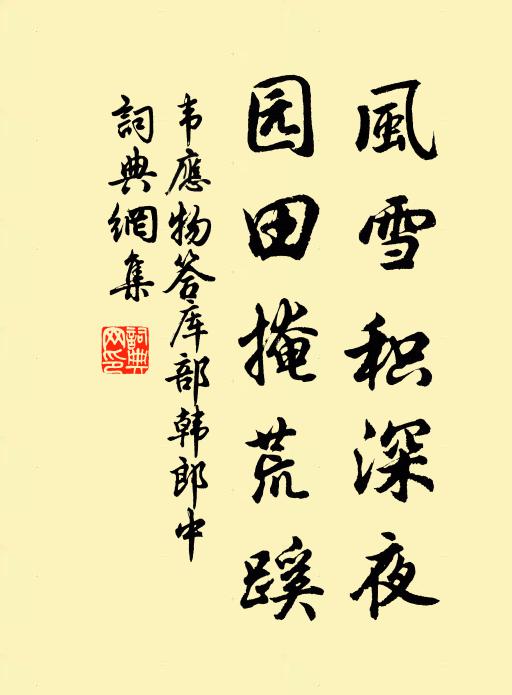 風雪积深夜
园田掩荒蹊
韦應物答库部韩郎中
詞典網集
詞典
网印